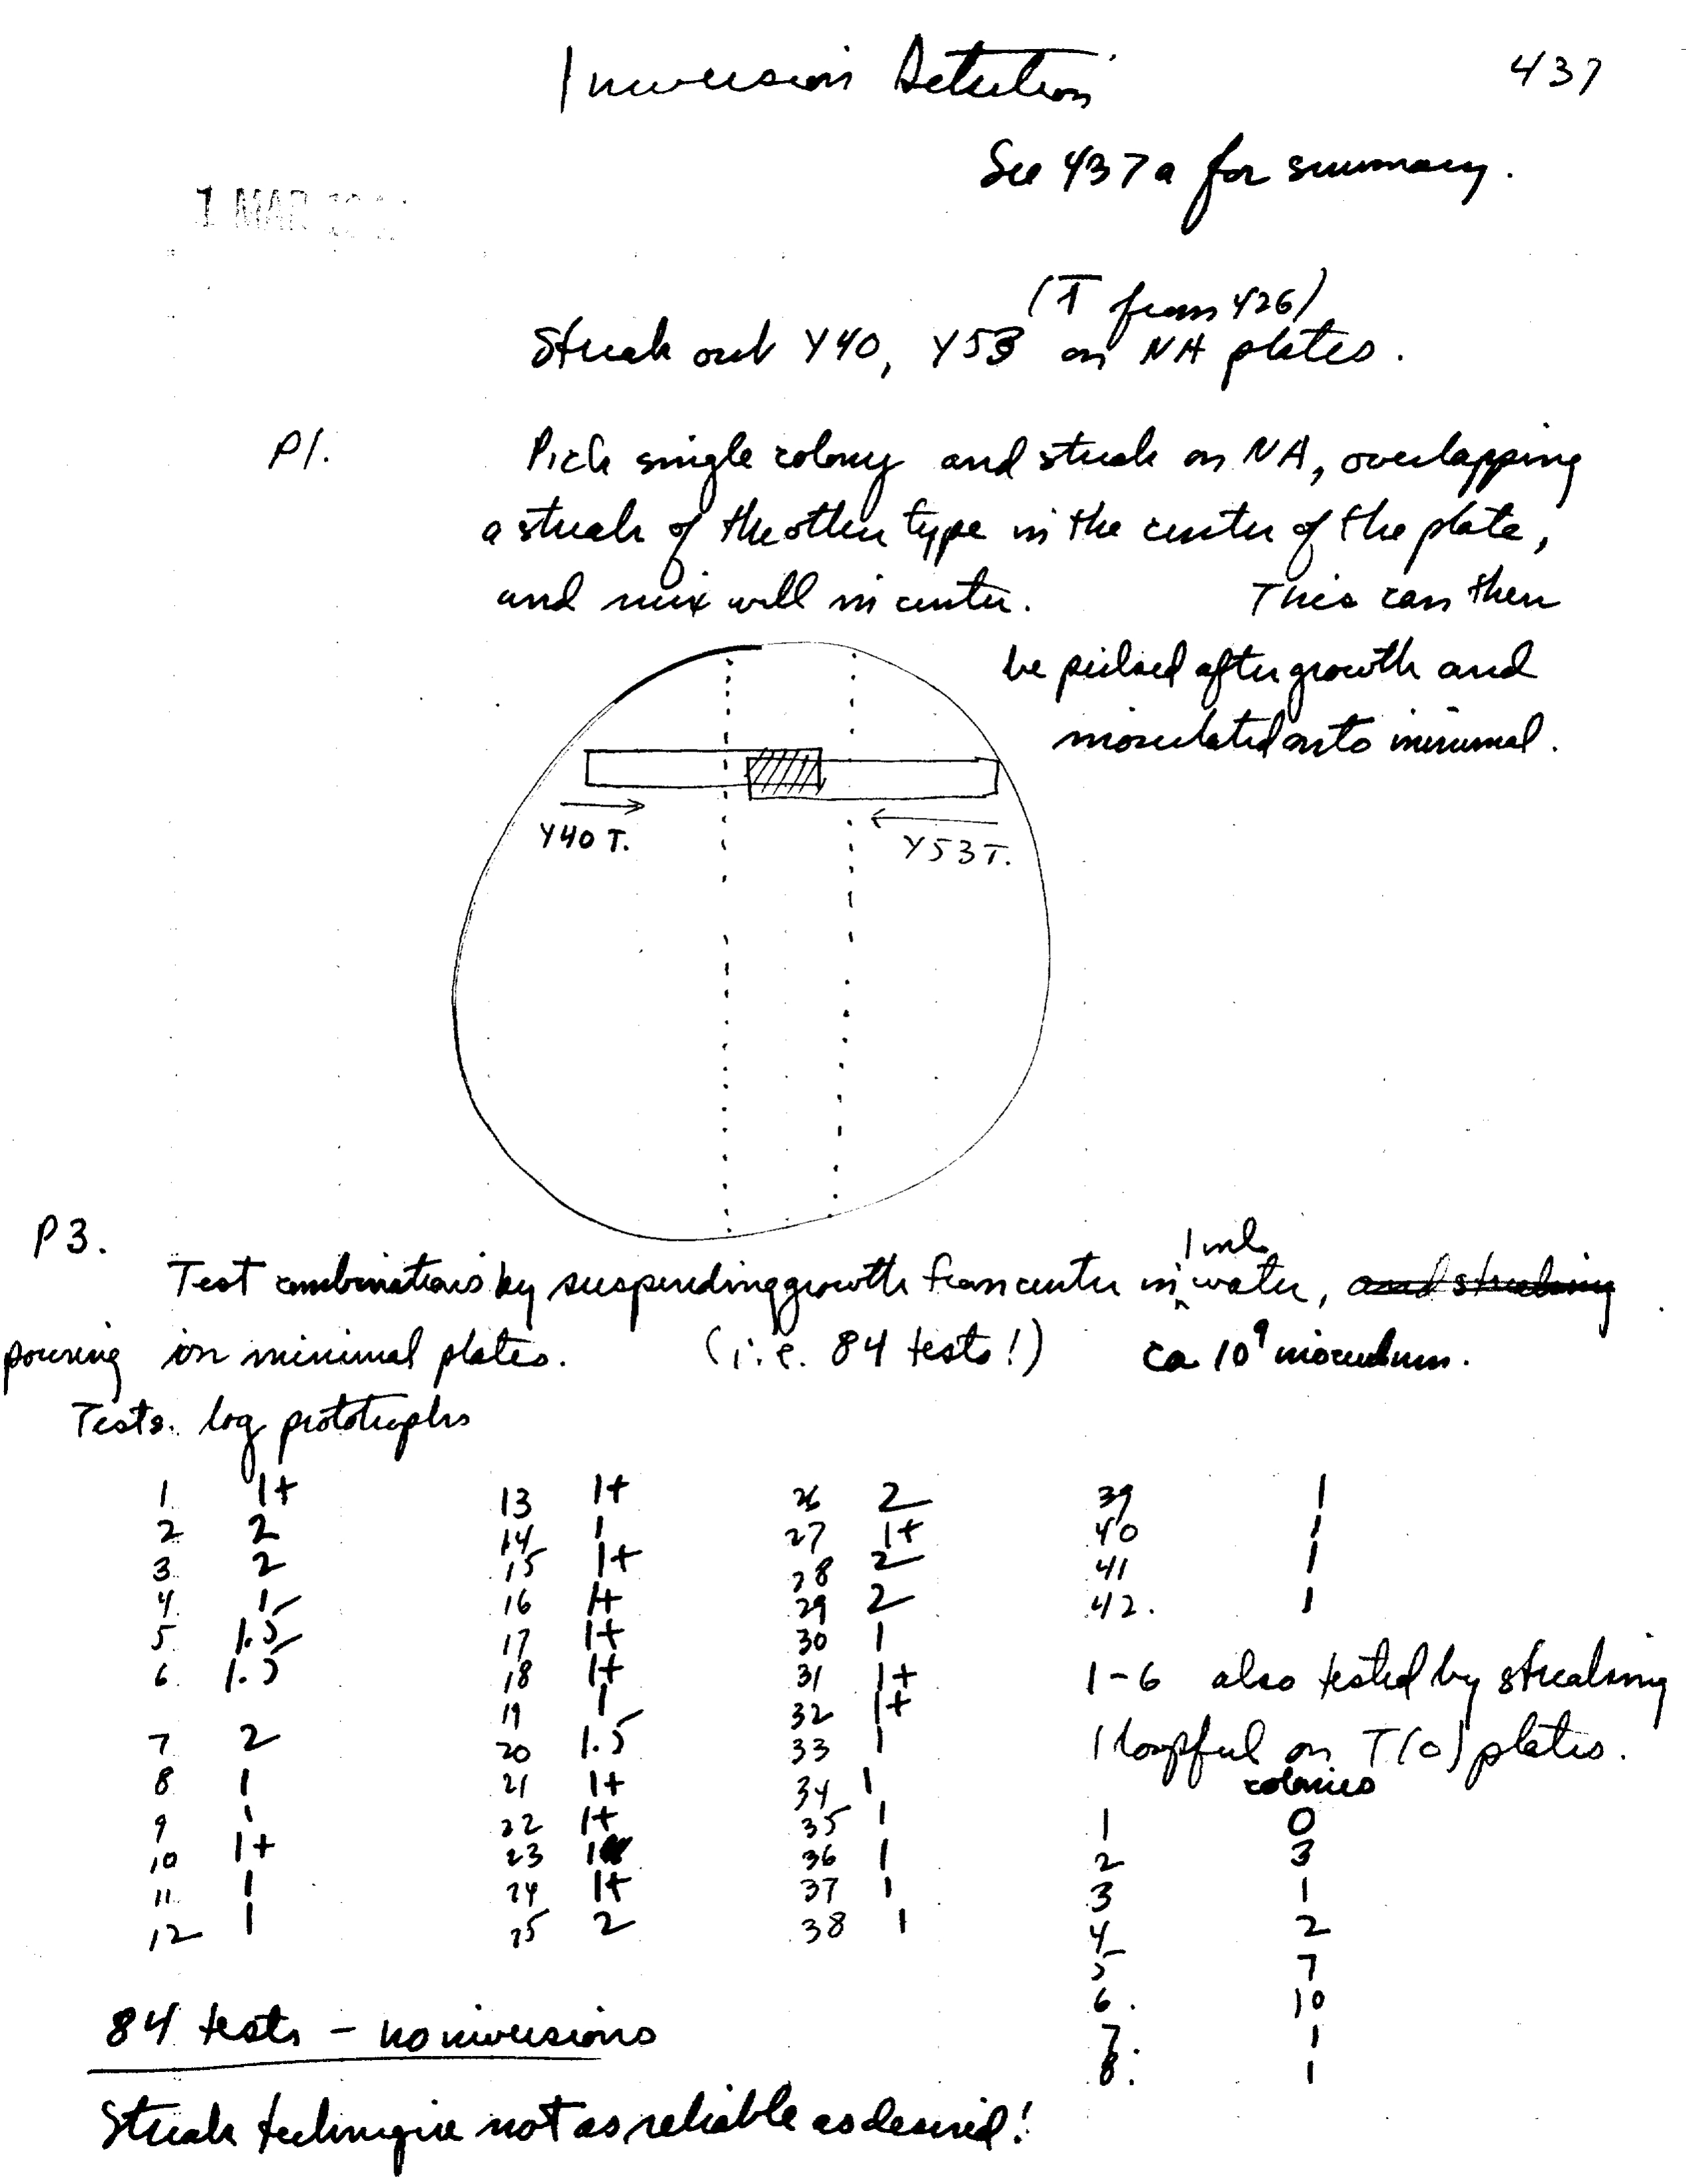 Inversion Detection 437
See 437a for summary.
1 MAR
(T from 426)
Streak out Y40, Y53 on NA plates.
P1. Pick single colony and streak on NA, overlapping
a streak of the other type in the center of the plate,
and mix well in center. This can then
be picked after growth and
inoculated onto minimal.
Y40 T. Y53 T.
P3.
Test combinations by suspending growth from center in 1 ml water, and streaking
pouring on minimal plates. (i.e. 84 tests!) ca 10⁹ inoculum.
Tests. log prototrophs
1 1+ 13 1+ 26 2 39 1
2 2 14 1 27 1+ 40 1
3 2 15 1+ 28 2 41 1
4 16 1+ 29 2 42. 1
5 1.5 17 1+ 30 1
6 1.5 18 1+ 31 1+
19 1 32 1+
7 2 20 1.5 33 1
8 1 21 1+ 34 1
9 1 22 1+ 35 1
10 1+ 23 1 36 1
11 1 24 1+ 37 1
12 1 25 2 38 1
1-6 also tested by streaking
1 loopful on T(0) plates.
colonies
1 0
2 3
3 1
4 2
5 7
6. 10
7. 1
8. 1
84 tests – no inversions
Streak technique not as reliable as desired!